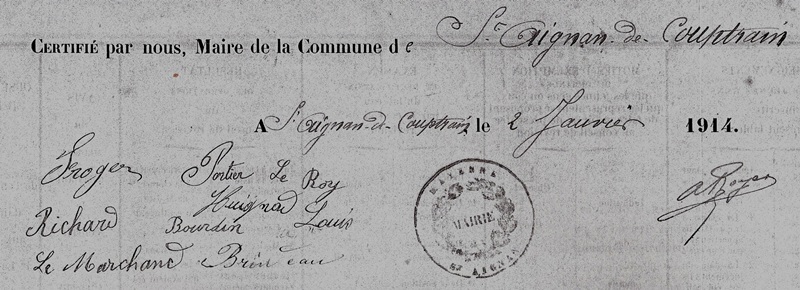 CERTIFIÉ par nous, Maire de la Commune de St Aignan-de-Couptrain
A St Aignan-de-Couptrain, le 2 Janvier 1914.
Froger Portier Le Roy
Huignard
Richard Bourdin Louis
Le Marchand Brineau
MAYENNE
MAIRIE
St AIGNAN